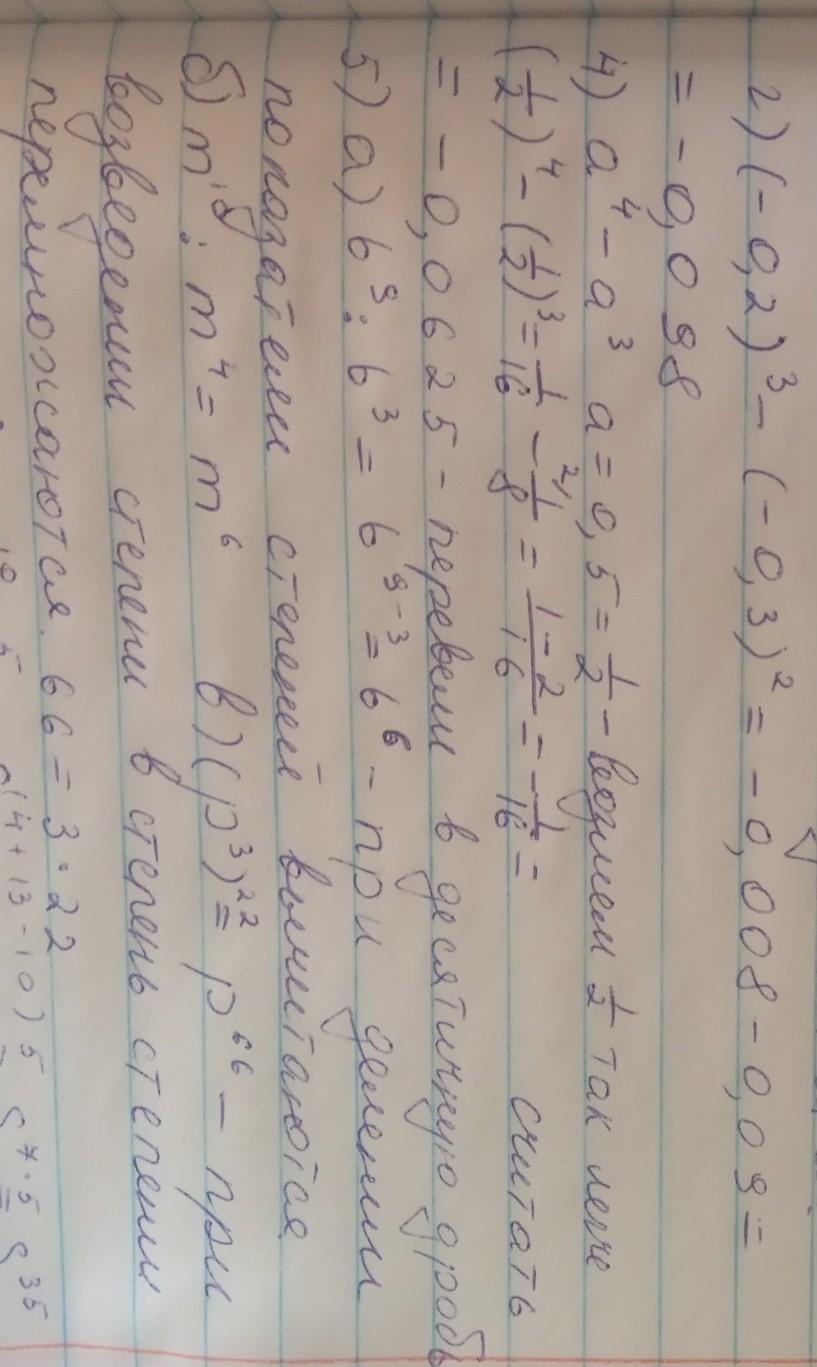 г) (-0,2)³ - (-0,3)² = -0,008 - 0,09 =
= -0,098
4) a⁴ - a³ a = 0,5 = 1/2 - возьмем 1/2 так легче
(1/2)⁴ - (1/2)³ = 1/16 - 1/8 ²⁾ = (1-2)/16 = -1/16 = считать
= -0,0625 - перевели в десятичную дробь
5) а) b⁹ : b³ = b⁹⁻³ = b⁶ - при делении
показатели степеней вычитаются
б) m : m⁴ = m⁶ в) (p³)²² = p⁶⁶ - при
возведении степени в степень степени
перемножаются. 66 = 3·22
(4+13-10)5 7·5 35